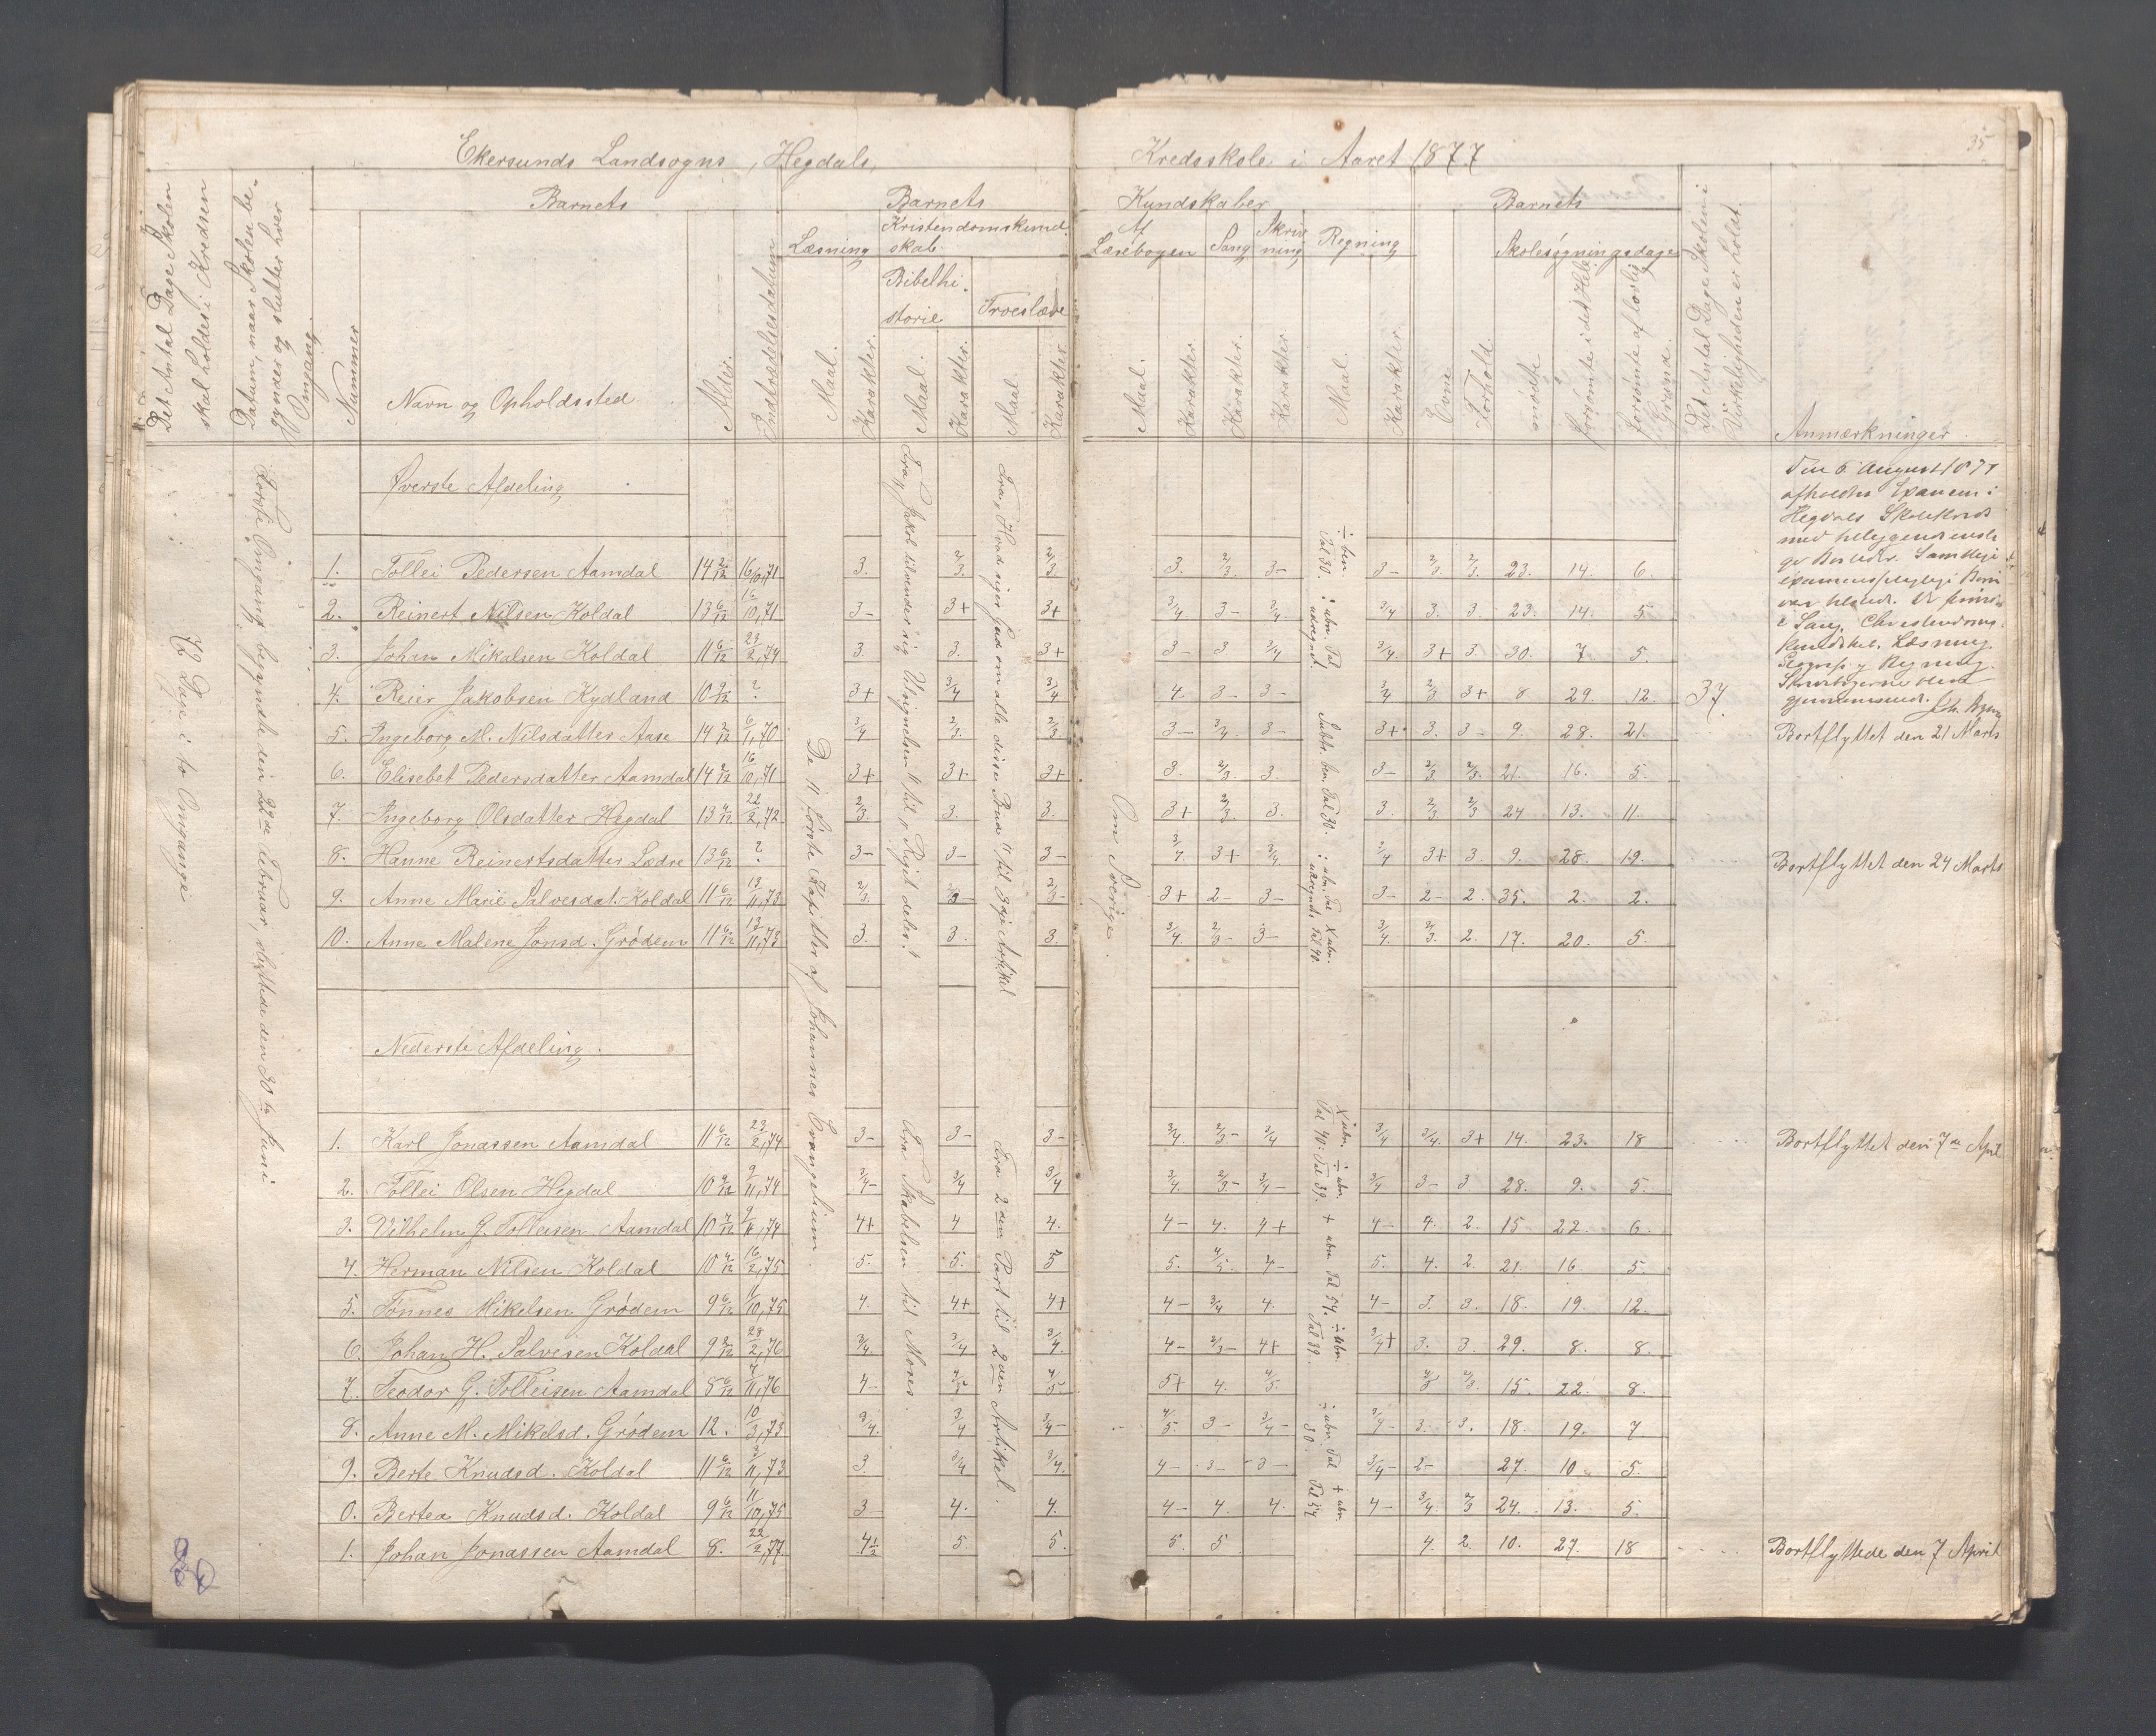 Ekersunds Landsogns, Hegdals, Kredsskole i Aaret 1877
35
Det Antal Dage Skolen skal holdes i Kredsen
Datum, naar Skolen begynder og slutter hver Omgang.
Nummer
Barnets
Navn og Opholdssted
Alder.
Indtrædelsesdatum
Barnets Kundskaber
Læsning
Kristendomskundskab
Bibelhistorie
Troeslære
Af Læsebogen
Sang
Skrivning
Regning
Maal. Karakter. Maal. Karakter. Maal. Karakter
Maal. Karakter. Karakter. Karakter. Maal. Karakter
Barnets
Evne
Forhold.
Skolesøgningsdage
mødte
forsømte i det Hele
forsømte af lovlig Grund.
Det Antal Dage Skolen i Virkeligheden er holdt.
Anmærkninger.
72 Dage i to Omgange
Første Omgang begyndte den 22de Februar, sluttede den 30te Juni
De 11 første Kapitler af Johannes Evangelium.
Fra „Jakob tilvender sig Velsignelsen“ til „Riget deles“.
Fra „Hvad siger Gud om alle disse Bud“ til 3die Artikel
Om Sverige.
Øverste Afdeling
1. Tollei Pedersen Aamdal 14 2/12 16/10,71 3. 2/3. 2/3. 3. 2/3. 3- 3- 2/3. 2/3. 23. 14. 6.
2. Reinert Nilsen Koldal 13 6/12 16/10,71 3- 3+ 3+ 3/4. 3- 3/4. 3/4 3. 3. 23. 14. 5.
3. Johan Mikalsen Koldal 11 6/12 23/2,74 3. 3. 3+ 3- 3 3/4 3/4. 3+ 3. 30. 7. 5.
4. Reier Jakobsen Kydland 10 9/12 ? 3+ 3/4 3/4 4. 3- 3- 3/4 2/3 3+ 8 29. 12. 37.
5. Ingeborg M. Nilsdatter Aase 14 2/12 6/1,70 3/4 2/3. 2/3. 3- 3/4 3- 3+ 3. 3- 9. 28. 21. Bortflyttet den 21 Marts
6. Elisebet Pedersdatter Aamdal 14 2/12 16/10,71 3+ 3+ 3+ 3. 2/3. 3. 3- 2/3 2/3. 21. 16. 5.
7. Ingeborg Olsdatter Hegdal 13 4/12 22/2,72 2/3. 3. 3. 3+ 2/3. 3. 3. 2/3 2/3 24 13. 11.
8. Hanne Reinertsdatter Lædre 13 6/12 ? 3- 3- 3- 3/4 3+ 3/4 3/4 3+ 3. 9. 28. 19. Bortflyttet den 24 Marts
9. Anne Marie Salvesdat. Koldal 11 6/12 13/11,73 2/3. 3- 2/3- 3+ 2- 3- 3- 2- 2. 35. 2. 2.
10. Anne Malene Jonsd. Grødem 11 6/12 13/11,73 3. 3. 3. 3/4. 2/3- 3- 3/4. 2/3. 2. 17. 20. 5.
Den 6 August 1877
afholdtes Examen i
Hegdals Skolekreds
Nederste Afdeling.
Fra Skabelsen til Moses.
Fra 2den Part til 2den Artikel.
1. Karl Jonassen Aamdal 11 6/12 23/2,74 3- 3- 3- 3/4. 2/3- 3/4 3/4 3/4. 3+ 14. 23. 18 Bortflyttet den 7de April
2. Tollei Olsen Hegdal 10 9/12 9/11,74 3/4- 3/4 3/4 3/4. 2/3- 3/4- 3/4 3- 3 28. 9. 5.
3. Vilhelm G. Tolleisen Aamdal 10 4/12 9/11,74 4+ 4 4. 4- 4. 4+ 4- 4. 2. 15 22. 6.
4. Herman Nilsen Koldal 10 4/12 16/2,75 5. 5. 5 5. 4/5. 4- 5. 4. 2. 21 16. 5.
5. Tønnes Mikelsen Grødem 9 6/12 11/10,75 4. 4+ 4+ 4- 3/4 4. 4- 3. 3. 18. 19. 12.
6. Johan H. Salvesen Koldal 9 2/12 28/2,76 3/4. 3/4 3/4. 4- 2/3- 4+ 3/4+ 3. 3. 29. 8. 8.
7. Teodor G. Tolleisen Aamdal 8 6/12 7/11,76 4- 4/5 4/5. 5+ 4. 4/5. 2/3 2/3. 15. 22. 8.
8. Anne M. Mikelsd. Grødem 12. 10/3,73 3/4. 3/4 3/4- 4/5 3- 3/4- 3/4- 3. 3. 18. 19. 7
9. Berte Knudsd. Koldal 11 6/12 3/11,73 3. 3/4 3/4. 4- 3- 3- 3/4- 2- 27. 10 5.
0. Bertea Knudsd. Koldal 9 6/12 11/10,75 3- 4. 4. 4- 4 4. 4- 3/4. 2/3 24. 13. 5
1. Johan Jonassen Aamdal 8. 22/2,77 4 1/2 5. 5. 5. 5 4. 2. 10. 27. 18 Bortflyttede den 7 April